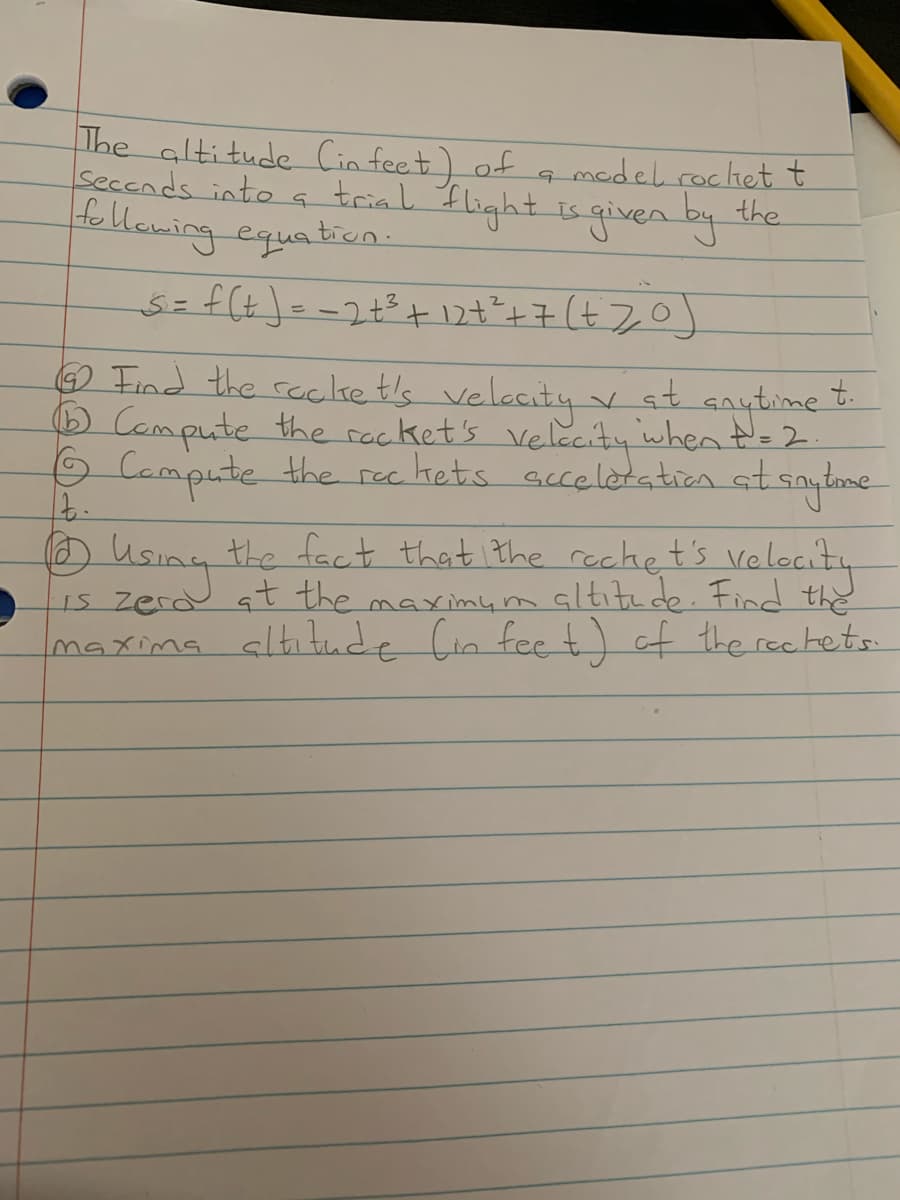 The altitude (in feet) of a model rocket t
seconds into a trial flight is given by the
following equation.
s = f(t) = -2t³ + 12t² + 7 (t ≥ 0)
(a) Find the rocket's velocity v at anytime t.
(b) Compute the rocket's velocity when t = 2.
(c) Compute the rockets acceleration at anytime
t.
(d) Using the fact that the rocket's velocity
is zero at the maximum altitude. Find the
maxima altitude (in feet) of the rockets.